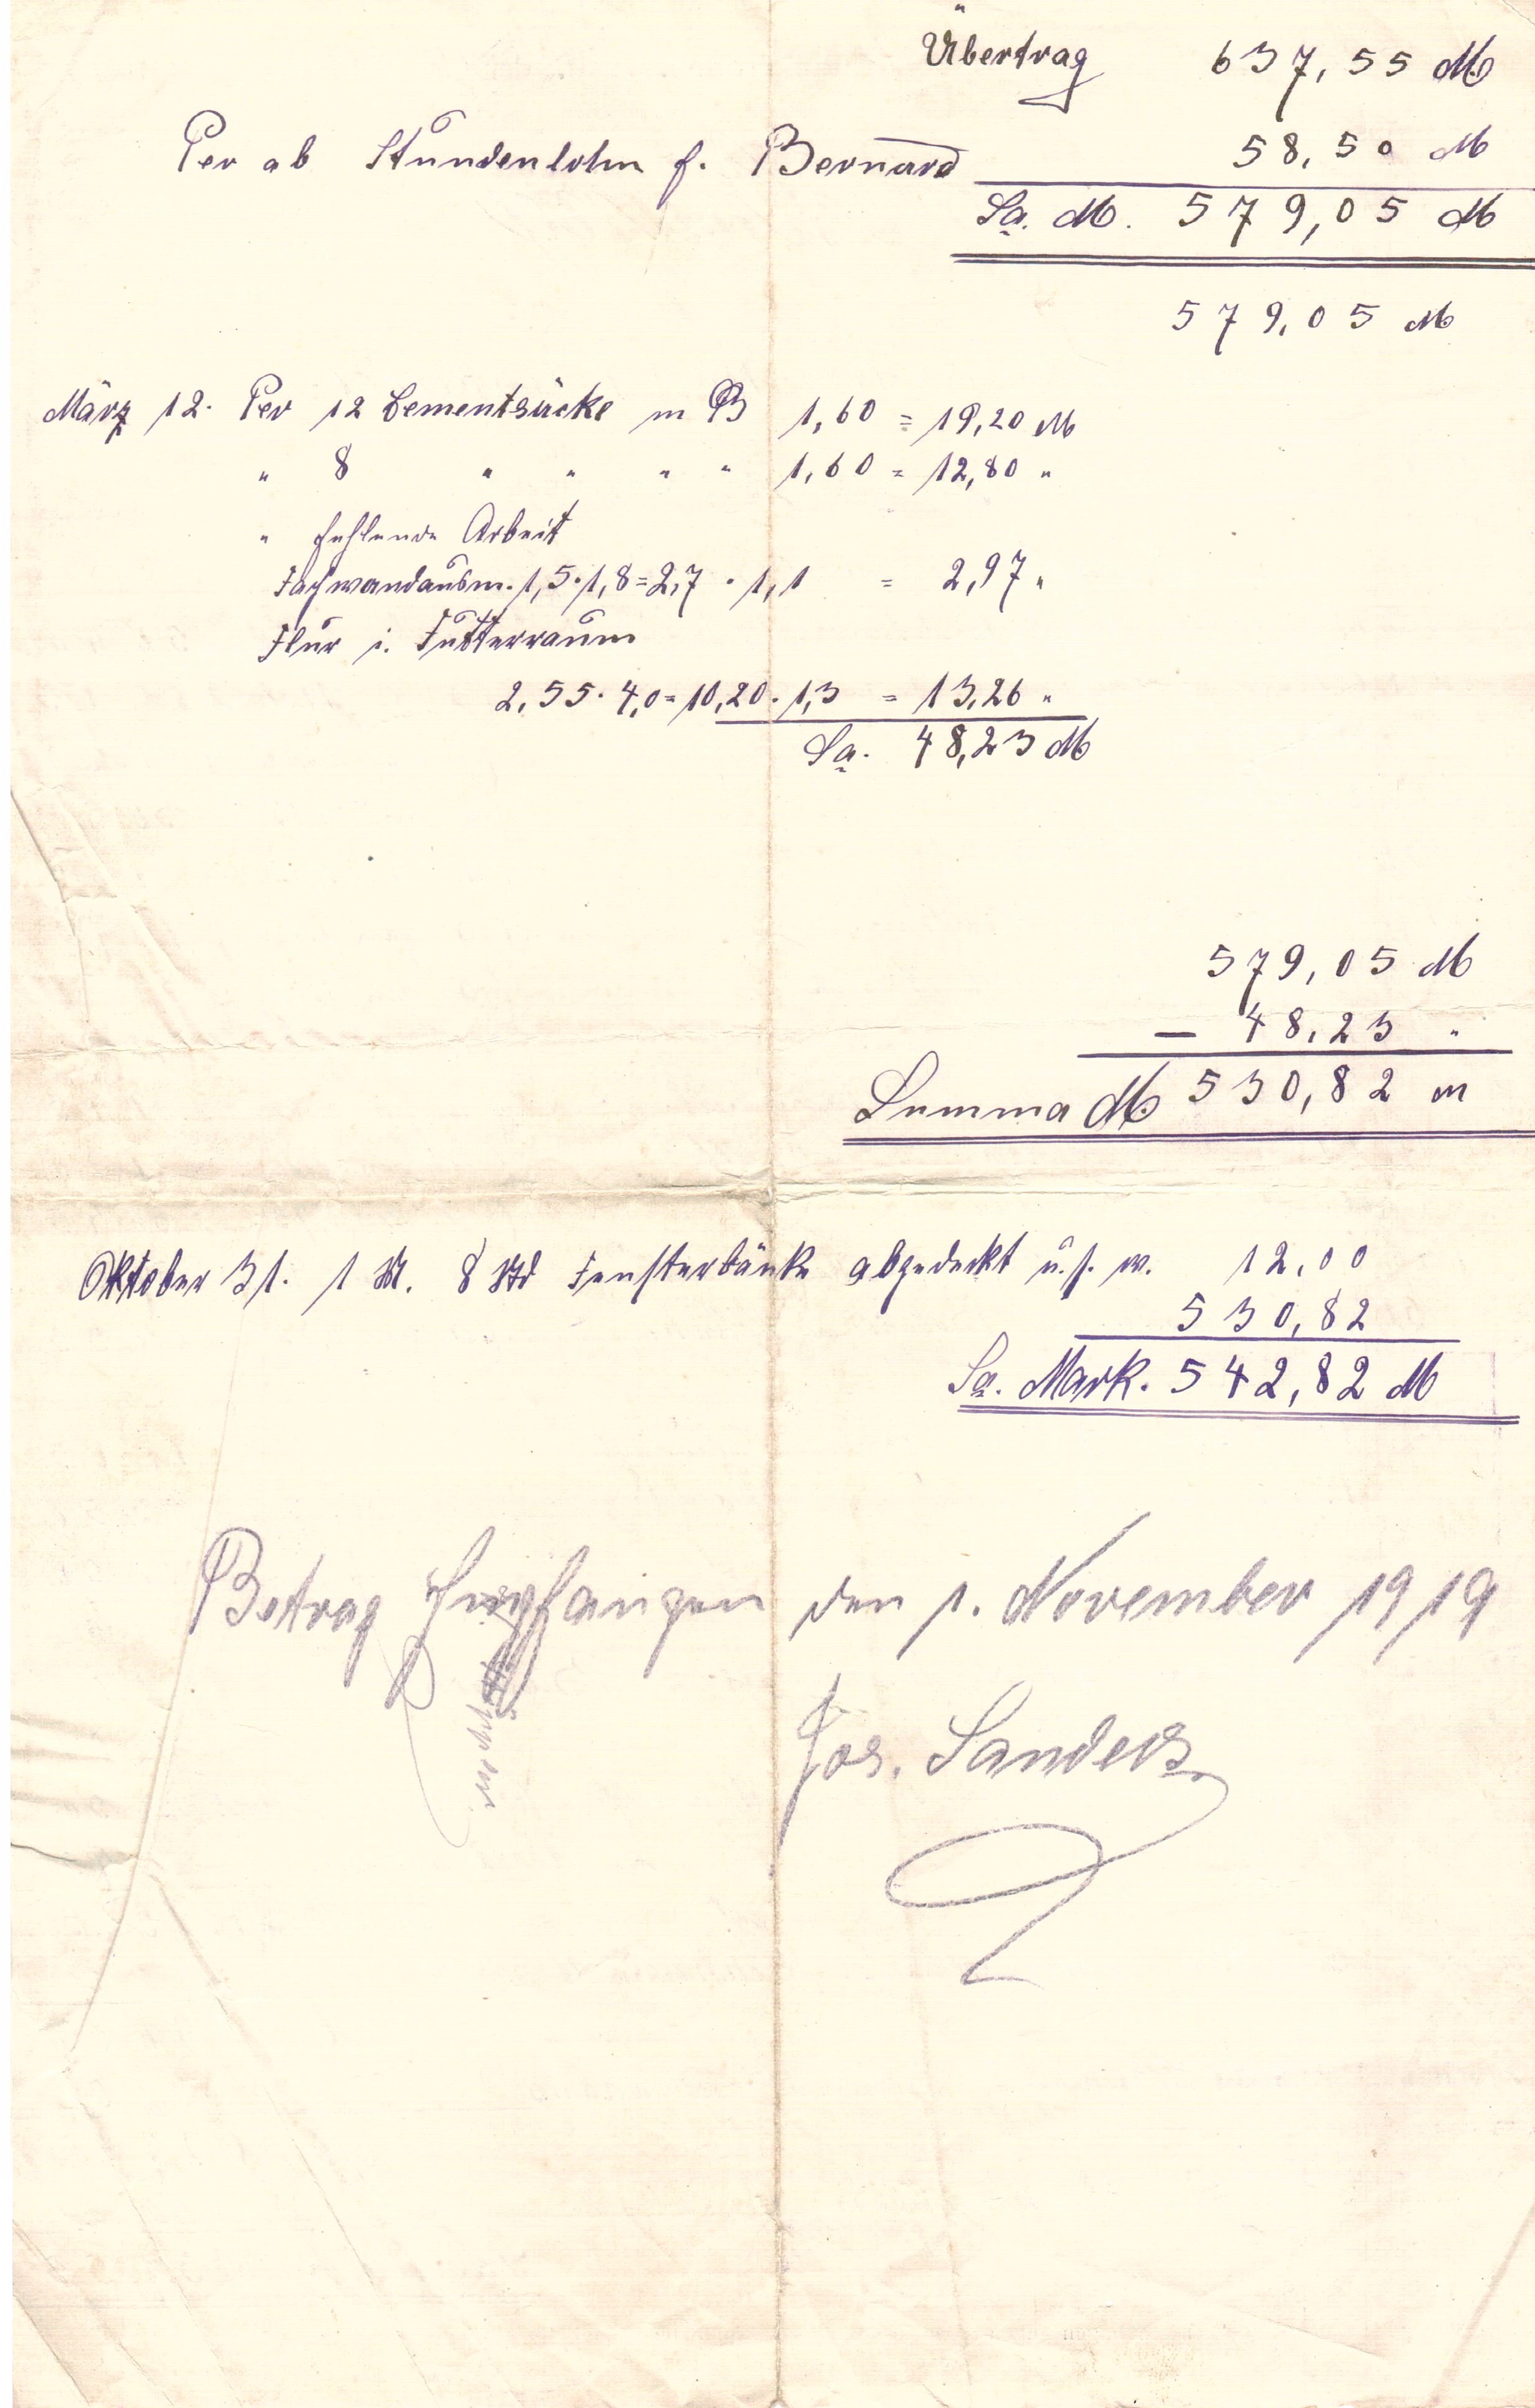 Übertrag 637,55 M
Per ab Stundenlohn f. Bernard 58,50 M
Sa. M. 579,05 M
579,05 M
März 12. Per 12 Cementsäcke 1,60 = 19,20 M
" 8 " " " " 1,60 = 12,80 "
" fehlende Arbeit
Fachwandausm. 1,5 · 1,8 = 2,7 · 1,1 = 2,97 "
Flur i. Futterraum
2,55 · 4,0 = 10,20 · 1,3 = 13,26 "
Sa. 48,23 M
579,05 M
— 48,23 "
Summa M 530,82 M
Oktober 31. 1 M. 8 Std Fensterbänke abgedeckt u.s.w. 12,00
530,82
Sa. Mark. 542,82 M
Betrag Empfangen den 1. November 1919
Jos. Sanders